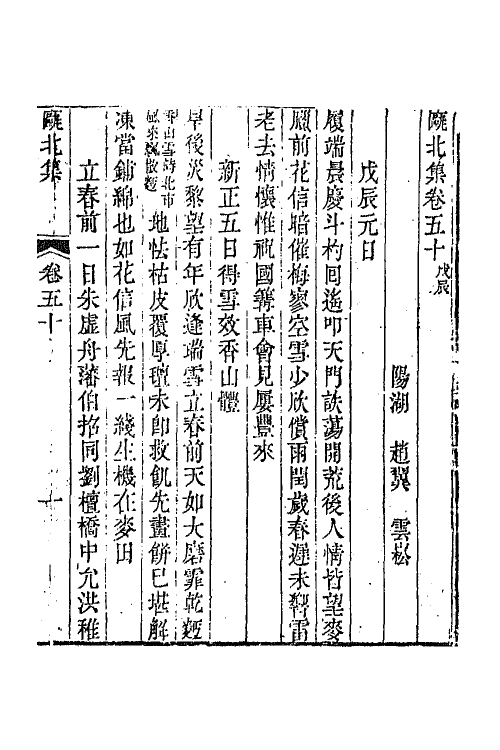 甌北集卷五十 戊辰
陽湖 趙翼 雲崧
戊辰元日
履端晨慶斗杓囘遙叩天門詄蕩開荒後人情皆望麥
臘前花信暗催梅寥空雪少欣償雨閏歲春遲未響雷
老去情懷惟祝國篝車會見屢豐來
新正五日得雪效香山體
旱後災黎望有年欣逢端雪立春前天如大磨霏乾麪
地怯枯皮覆厚氊未卽救飢先畫餅已堪解
凍當鋪綿也如花信風先報一綫生機在麥田
立春前一日朱虛舟藩伯招同劉檀橋中允洪稚
甌北集 卷五十 一